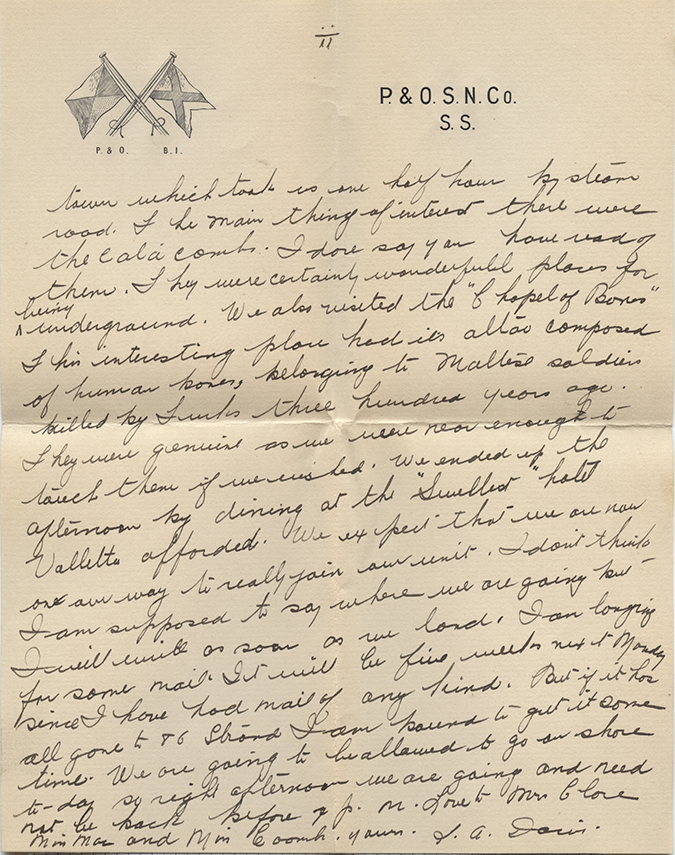 ii
P. & O. S. N. Co.
S. S.
P. & O. B. I.
town which took us one half hour by steam
road. The main thing of interest there were
the Catacombs. I dare say you have read of
them. They were certainly wonderfull places for
being
^ underground. We also visited the "Chapel of Bones"
This interesting place had its altar composed
of human bones, belonging to Maltese soldiers
killed by Turks three hundred years ago.
They were genuine as we were near enough to
touch them if we wished. We ended up the
afternoon by dining at the "Swellest" hotel
Valletta afforded. We expect that we are now
on our way to really join our unit. I don't think
I am supposed to say where we are going but
I will write as soon as we land. I am longing
for some mail. It will be five weeks next Monday
since I have had mail of any kind. But if it has
all gone to 86 Strand I am bound to get it some
time. We are going to be allowed to go on shore
to-day so right afternoon we are going and need
not be back before 9 p. m. Love to Mrs Clore
Miss Mac and Miss Coomb. yours. S. A. Davis.